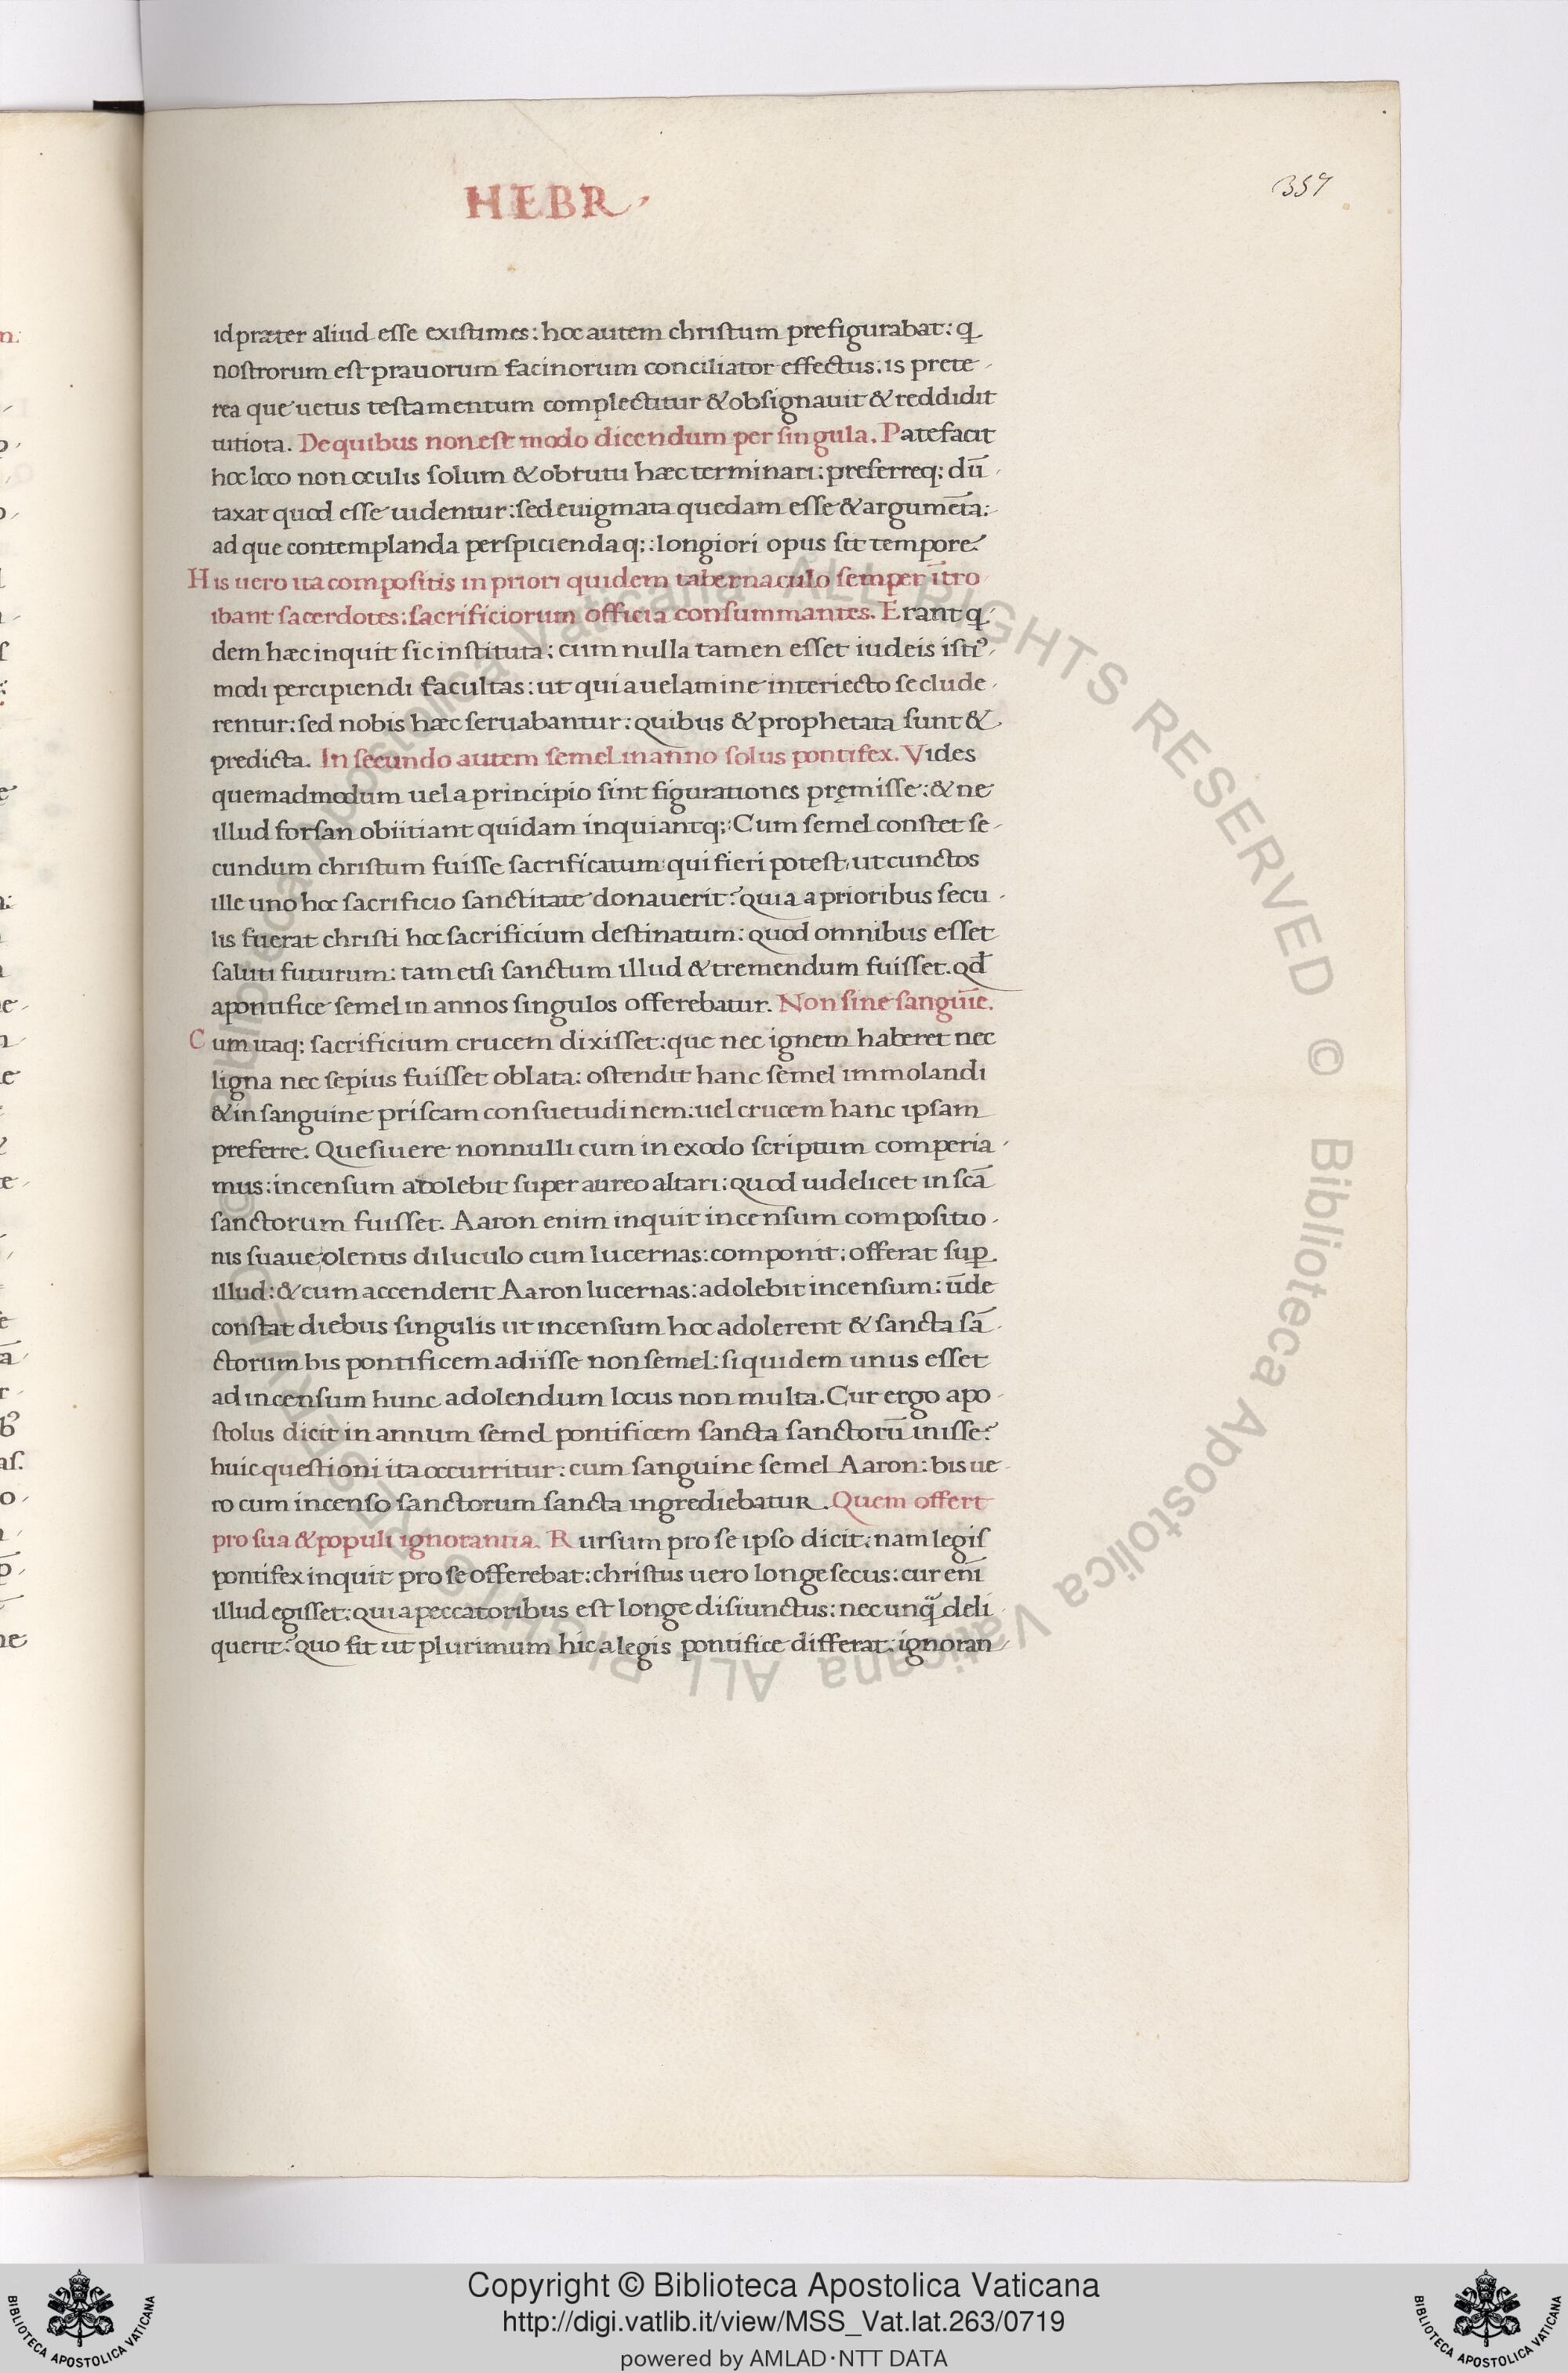 HEBR.
357
id præter aliud esse existimes: hoc autem christum prefigurabat: q
nostrorum est prauorum facinorum conciliator effectus: is prete-
rea que uetus testamentum complectitur & obsignauit & reddidit
tutiora. De quibus non est modo dicendum per singula. Patefacit
hoc loco non oculis solum & obtutu hæc terminari: preferreq; dū-
taxat quod esse uidentur: sed enigmata quedam esse & argumēta:
ad que contemplanda perspiciendaq;: longiori opus sit tempore.
His uero ita compositis in priori quidem tabernaculo semper ītro
ibant sacerdotes: sacrificiorum officia consummantes. Erant q
dem hæc inquit sic instituta: cum nulla tamen esset iudeis isti⁹-
modi percipiendi facultas: ut qui a uelamine interiecto seclude-
rentur: sed nobis hæc seruabantur: quibus & prophetata sunt &
predicta. In secundo autem semel in anno solus pontifex. Vides
quemadmodum uel a principio sint figurationes pręmisse: & ne
illud forsan obiitiant quidam inquiantq;: Cum semel constet se-
cundum christum fuisse sacrificatum: qui fieri potest, ut cunctos
ille uno hoc sacrificio sanctitate donauerit? quia a prioribus secu-
lis fuerat christi hoc sacrificium destinatum: quod omnibus esset
saluti futurum: tam etsi sanctum illud & tremendum fuisset. qđ
a pontifice semel in annos singulos offerebatur. Non sine sanguīe.
Cum itaq; sacrificium crucem dixisset: que nec ignem haberet nec
ligna nec sepius fuisset oblata: ostendit hanc semel immolandi
& in sanguine priscam consuetudinem: uel crucem hanc ipsam
preferre. Quesiuere nonnulli cum in exodo scriptum comperia-
mus: incensum adolebit super aureo altari: quod uidelicet in scā
sanctorum fuisset. Aaron enim inquit incensum compositio-
nis suaue olentis diluculo cum lucernas: componit: offerat suꝑ
illud: & cum accenderit Aaron lucernas: adolebit incensum: ūde
constat diebus singulis ut incensum hoc adolerent & sancta sā-
ctorum bis pontificem adiisse non semel: siquidem unus esset
ad incensum hunc adolendum locus non multa. Cur ergo apo-
stolus dicit in annum semel pontificem sancta sanctorū inisse?
huic questioni ita occurritur: cum sanguine semel Aaron: bis ue-
ro cum incenso sanctorum sancta ingrediebatur. Quem offert
pro sua & populi ignorantia. Rursum pro se ipso dicit: nam legis
pontifex inquit pro se offerebat: christus uero longe secus: cur enī
illud egisset: qui a peccatoribus est longe disiunctus: nec unq̃ deli
querit? quo fit ut plurimum hic a legis pontifice differat: ignoran-
© Biblioteca Apostolica Vaticana ALL RIGHTS RESERVED © Biblioteca Apostolica Vaticana ALL RIGHTS RESERVED
Copyright © Biblioteca Apostolica Vaticana
http://digi.vatlib.it/view/MSS_Vat.lat.263/0719
powered by AMLAD·NTT DATA
BIBLIOTECA APOSTOLICA VATICANA
BIBLIOTECA APOSTOLICA VATICANA